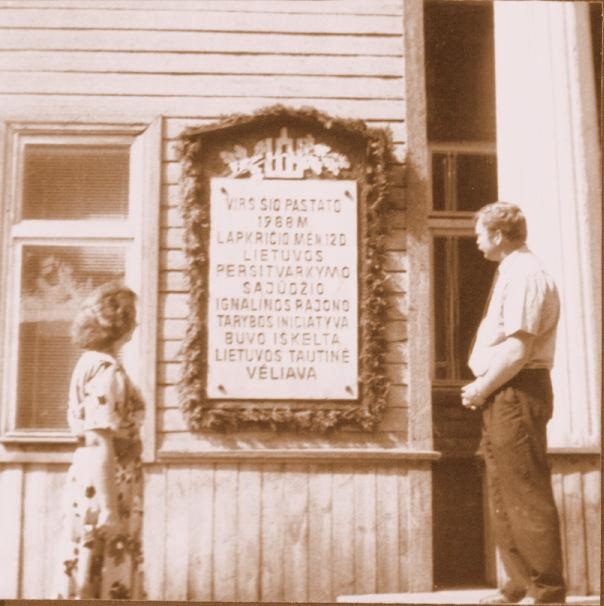 VIRŠ ŠIO PASTATO
1988 M.
LAPKRIČIO MĖN. 12 D.
LIETUVOS
PERSITVARKYMO
SĄJŪDŽIO
IGNALINOS RAJONO
TARYBOS INICIATYVA
BUVO IŠKELTA
LIETUVOS TAUTINĖ
VĖLIAVA